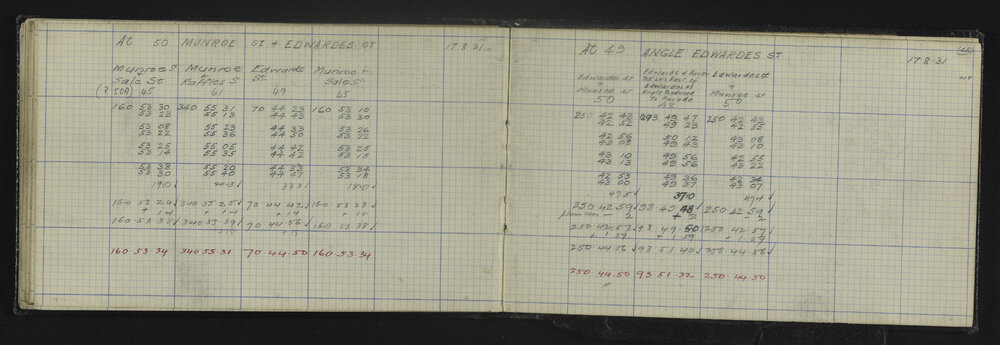 At 50 MUNROE ST & EDWARDES ST 17.8.31
Munroe St Munroe Edwards Munroe &
Sale St Raffles St St. Sale St.
45 61 49 45
160 53 30 340 55 31 70 44 23 160 53 10
53 23 55 13 44 43 53 30
53 08 55 23 44 33 53 26
53 22 55 36 44 30 53 22
53 25 55 05 44 42 53 25
53 14 55 35 44 42 53 15
53 38 55 20 44 53 53 34
53 30 55 40 44 47 53 18
190 203 333 180
160 53 24 340 55 25 70 44 42 160 53 23
+ 14 + 14 + 14 + 15
160 53 38 340 55 39 70 44 56 160 53 38
160.53.34 340.55.31 70.44.50 160.53.34
At 49 ANGLE EDWARDES ST 17.8.31
Edwardes St Edwardes St
Munroe St Edwardes St Munroe St
50 To Parade 50
250 42 48 93 49 47 250 42 43
42 52 49 23 42 55
42 56 50 12 43 08
43 08 49 43 43 10
43 10 49 56 42 55
43 13 49 56 43 22
42 53 49 36 42 34
43 00 49 37 43 07
475 370 474
250 42 59 93 49 48 250 42 59
- 2 + 2 - 2
250 42 57 93 49 50 250 42 57
+ 1 59 + 1 59 + 1 59
250 44 56 93 51 40 250 44 56
250.44.50 93.51.32 250.44.50